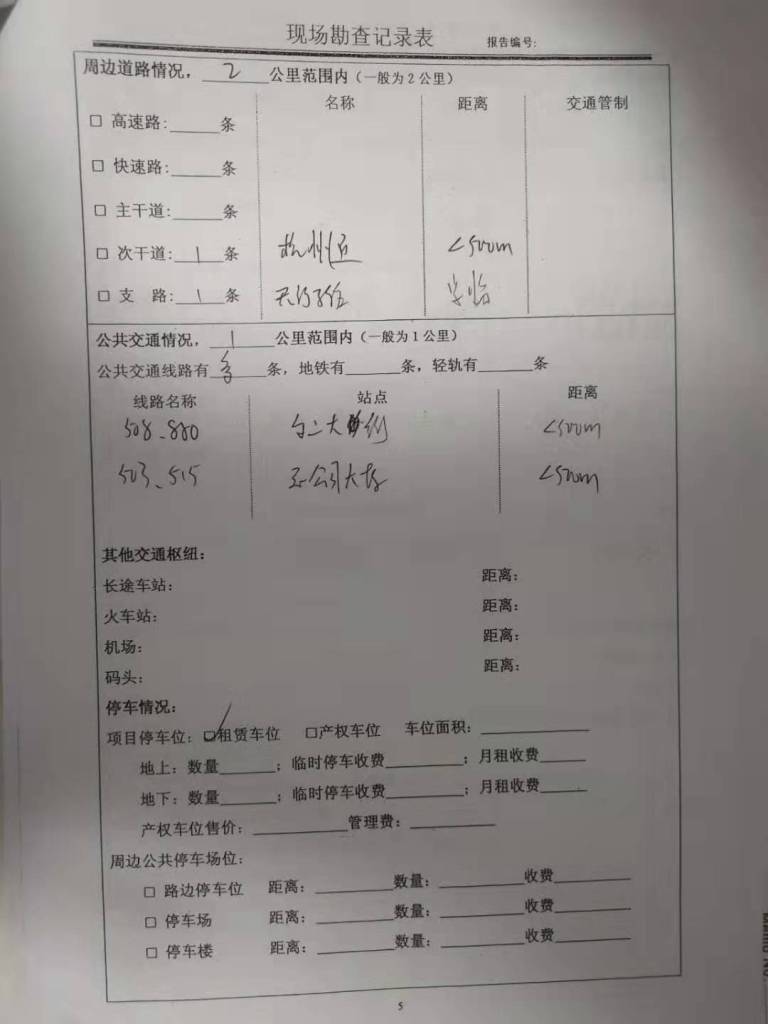 现场勘查记录表 报告编号:
周边道路情况，2公里范围内（一般为2公里）
名称 距离 交通管制
□ 高速路:____条
□ 快速路:____条
□ 主干道:____条
□ 次干道:1条 杭州 <500m
□ 支 路:1条
公共交通情况，1公里范围内（一般为1公里）
公共交通线路有多条，地铁有____条，轻轨有____条
线路名称 站点 距离
508、880 <500m
503、515 公司大 <500m
其他交通枢纽：
长途车站： 距离：
火车站： 距离：
机场： 距离：
码头： 距离：
停车情况：
项目停车位：☑租赁车位 □产权车位 车位面积：____
地上：数量____；临时停车收费____；月租收费____
地下：数量____；临时停车收费____；月租收费____
产权车位售价：____管理费：____
周边公共停车场位：
□ 路边停车位 距离：____数量：____收费____
□ 停车场 距离：____数量：____收费____
□ 停车楼 距离：____数量：____收费____
5